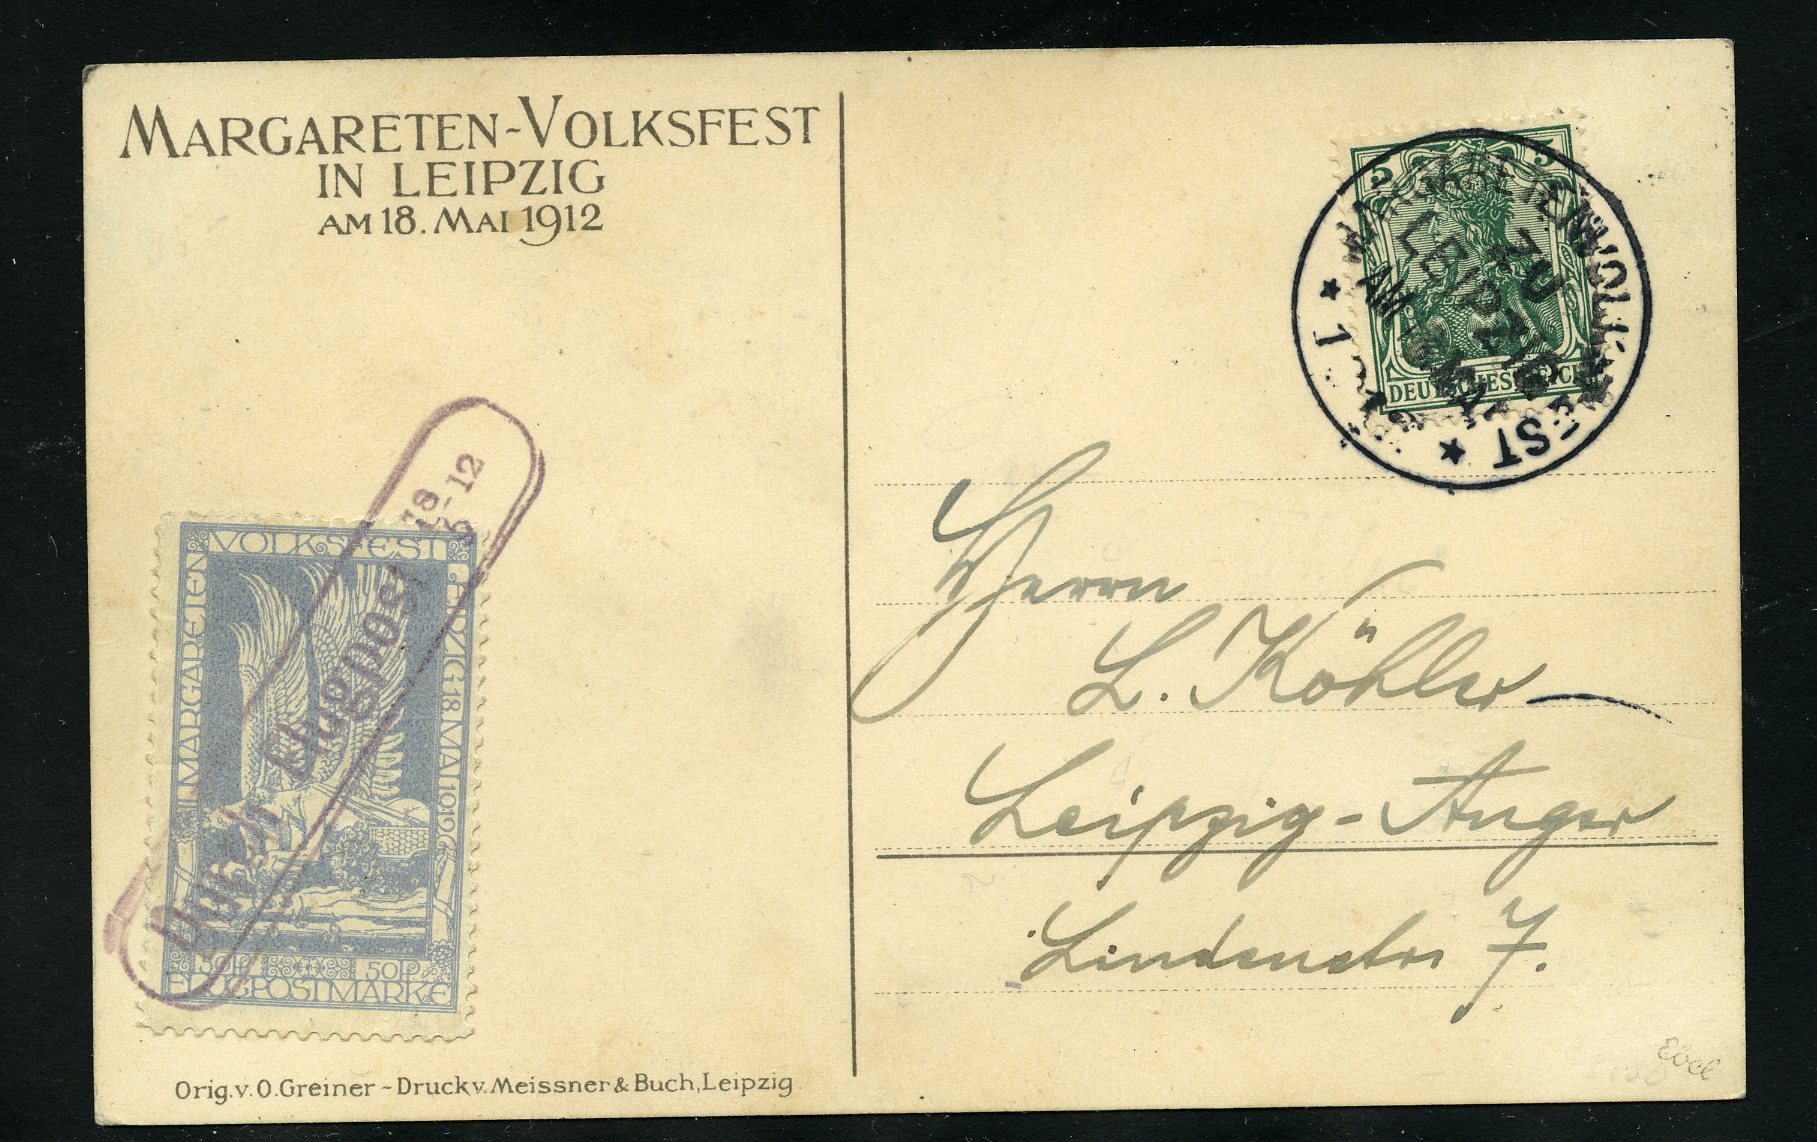 MARGARETEN-VOLKSFEST
IN LEIPZIG
AM 18. MAI 1912
5 5
DEUTSCHES REICH
MARGARETENVOLKSFEST
ZU
LEIPZIG
AM 18. MAI
★ 1 ★
18
5-12
Durch Flugpost
VOLKSFEST
MARGARETEN
LEIPZIG 18 MAI 1912
50 P 50 P
FLUGPOSTMARKE
Herrn
L. Köhler
Leipzig-Anger
Lindenstr 7.
Orig. v. O. Greiner - Druck v. Meissner & Buch, Leipzig